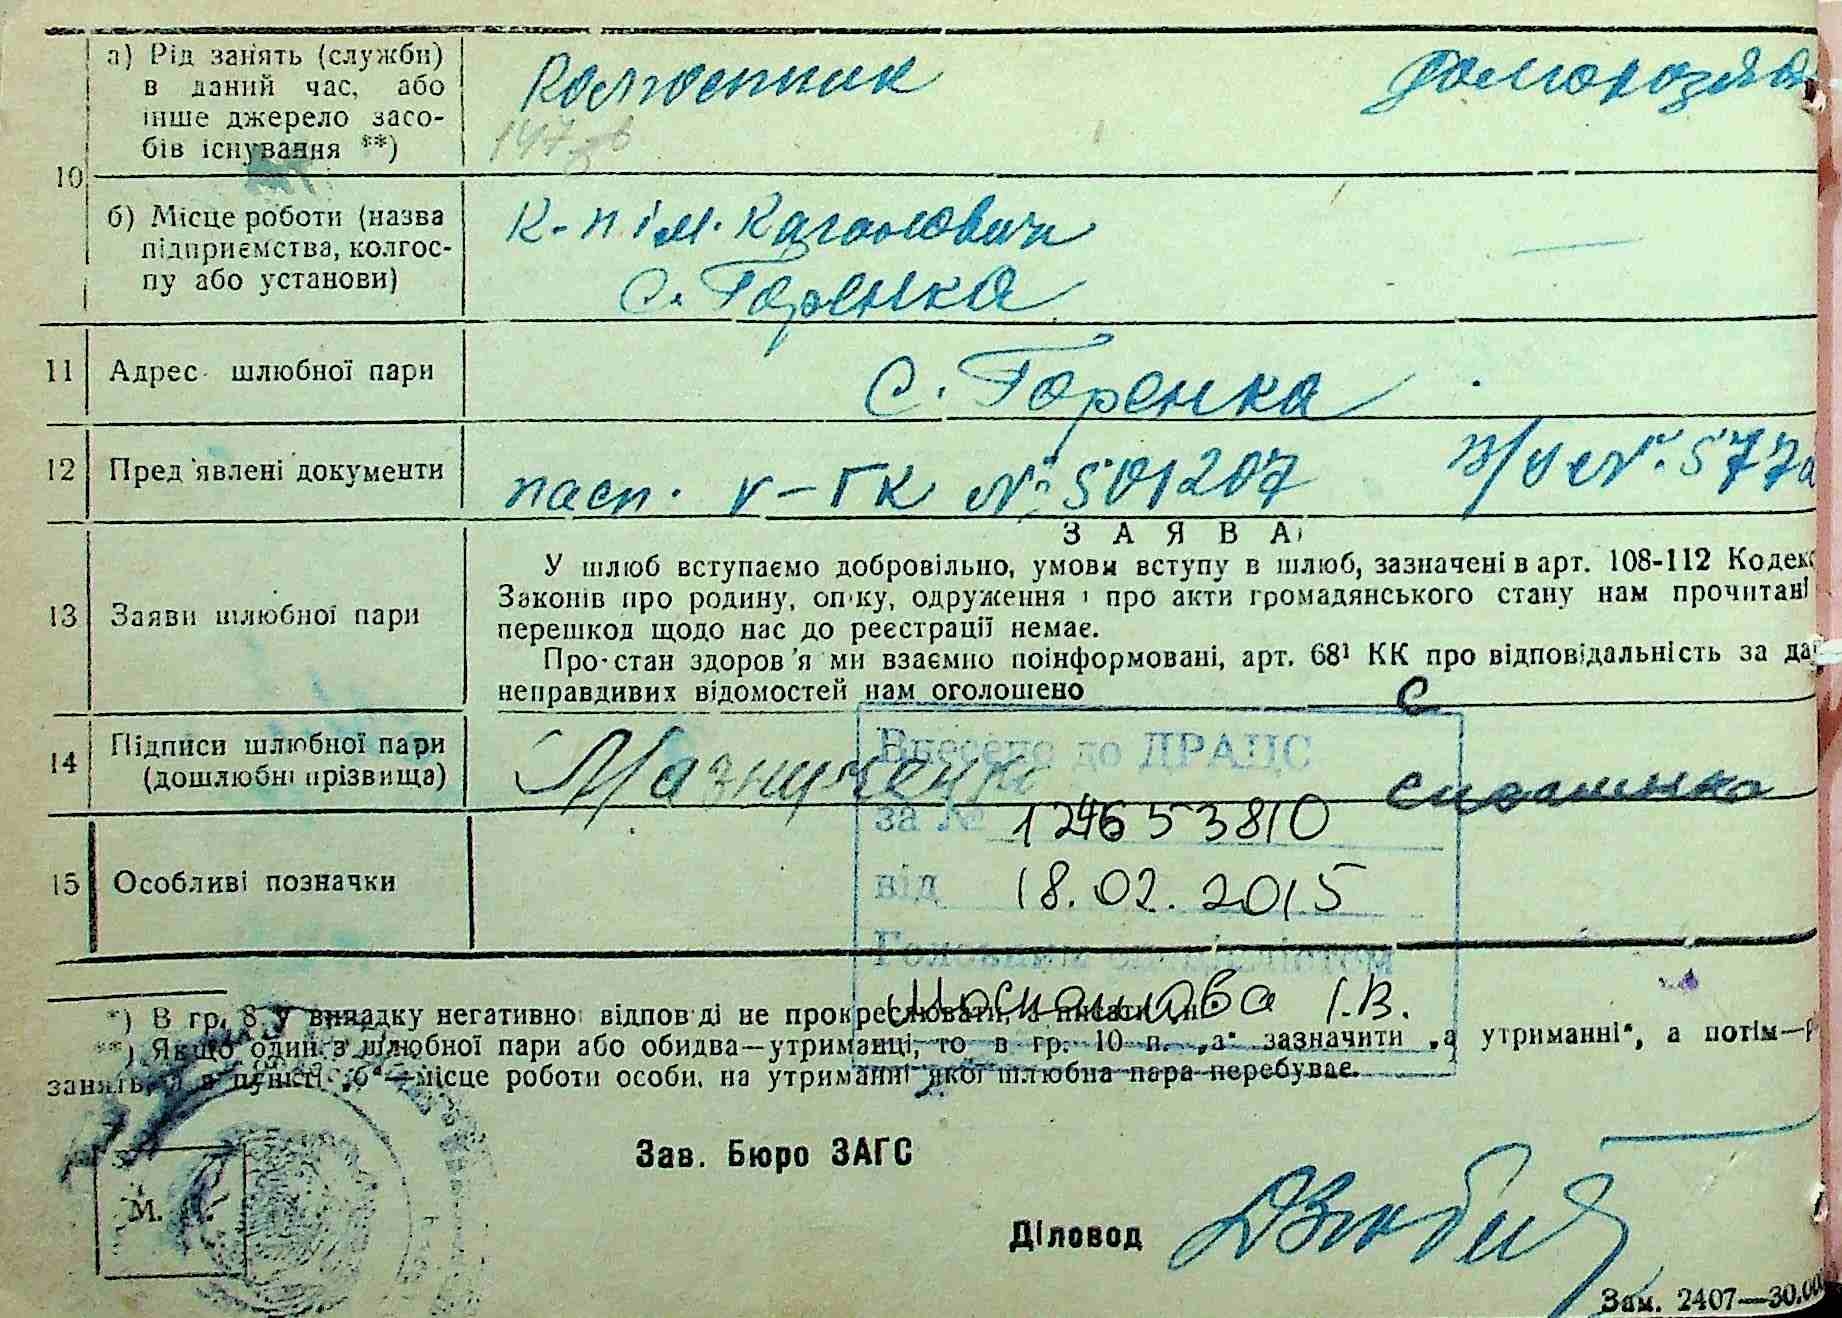 10
а) Рід занять (служби)
в даний час, або
інше джерело засо-
бів існування **)
Колгоспник
147
б) Місце роботи (назва
підприємства, колгос-
пу або установи)
к-п ім. Кагановича
с. Горенка
11 Адрес шлюбної пари
с. Горенка
12 Пред'явлені документи
пасп. V-ГК № 501207
13 Заяви шлюбної пари
ЗАЯВА
У шлюб вступаємо добровільно, умови вступу в шлюб, зазначені в арт. 108-112 Кодекс
Законів про родину, опіку, одруження і про акти громадянського стану нам прочитані
перешкод щодо нас до реєстрації немає.
Про стан здоров'я ми взаємно поінформовані, арт. 68¹ КК про відповідальність за да
неправдивих відомостей нам оголошено
14 Підписи шлюбної пари
(дошлюбні прізвища)
Внесено до ДРАЦС
за № 124653810
від 18.02.2015
Головним спеціалістом
І.В.
15 Особливі позначки
*) В гр. 8 у випадку негативної відповіді не прокреслювати, а писати „ні“
**) Якщо один з шлюбної пари або обидва—утриманці, то в гр. 10 п. „а“ зазначити „а утриманні“, а потім—р
занять, а в пункті „б“—місце роботи особи, на утриманні якої шлюбна пара перебуває.
М. П.
Зав. Бюро ЗАГС
Діловод
Зам. 2407—30.00